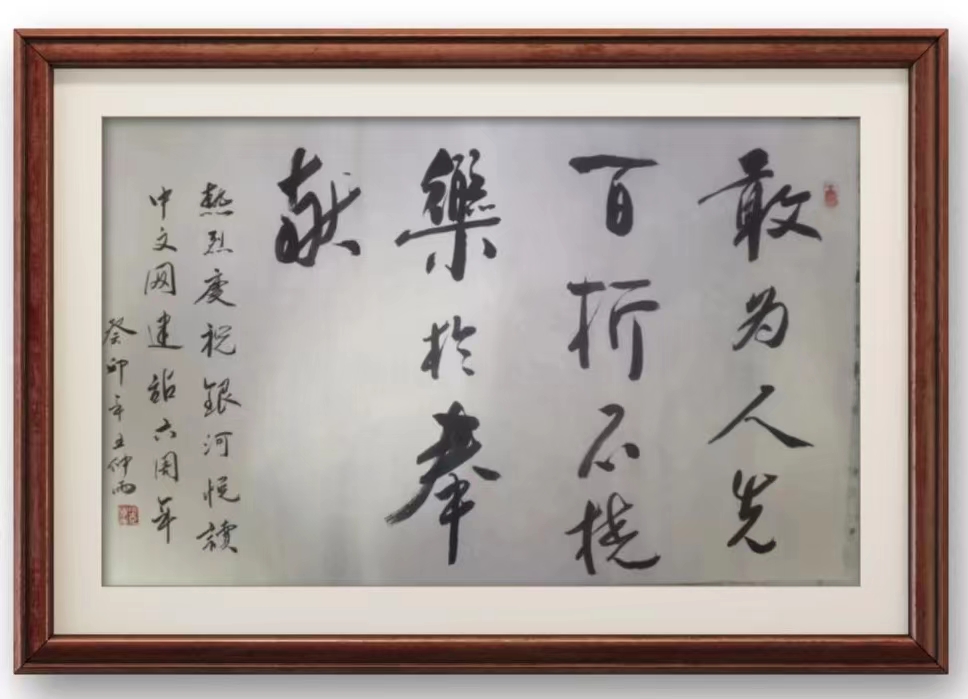 敢为人先
百折不挠
樂於奉
献
熱烈慶祝銀河悦讀
中文网建站六周年
癸卯年仲雨